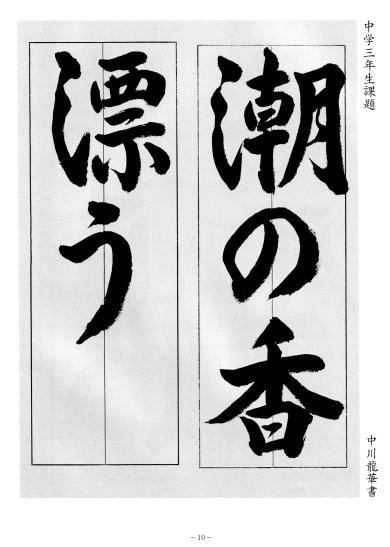 中学三年生課題
潮の香
漂う
中川龍華書
－10－